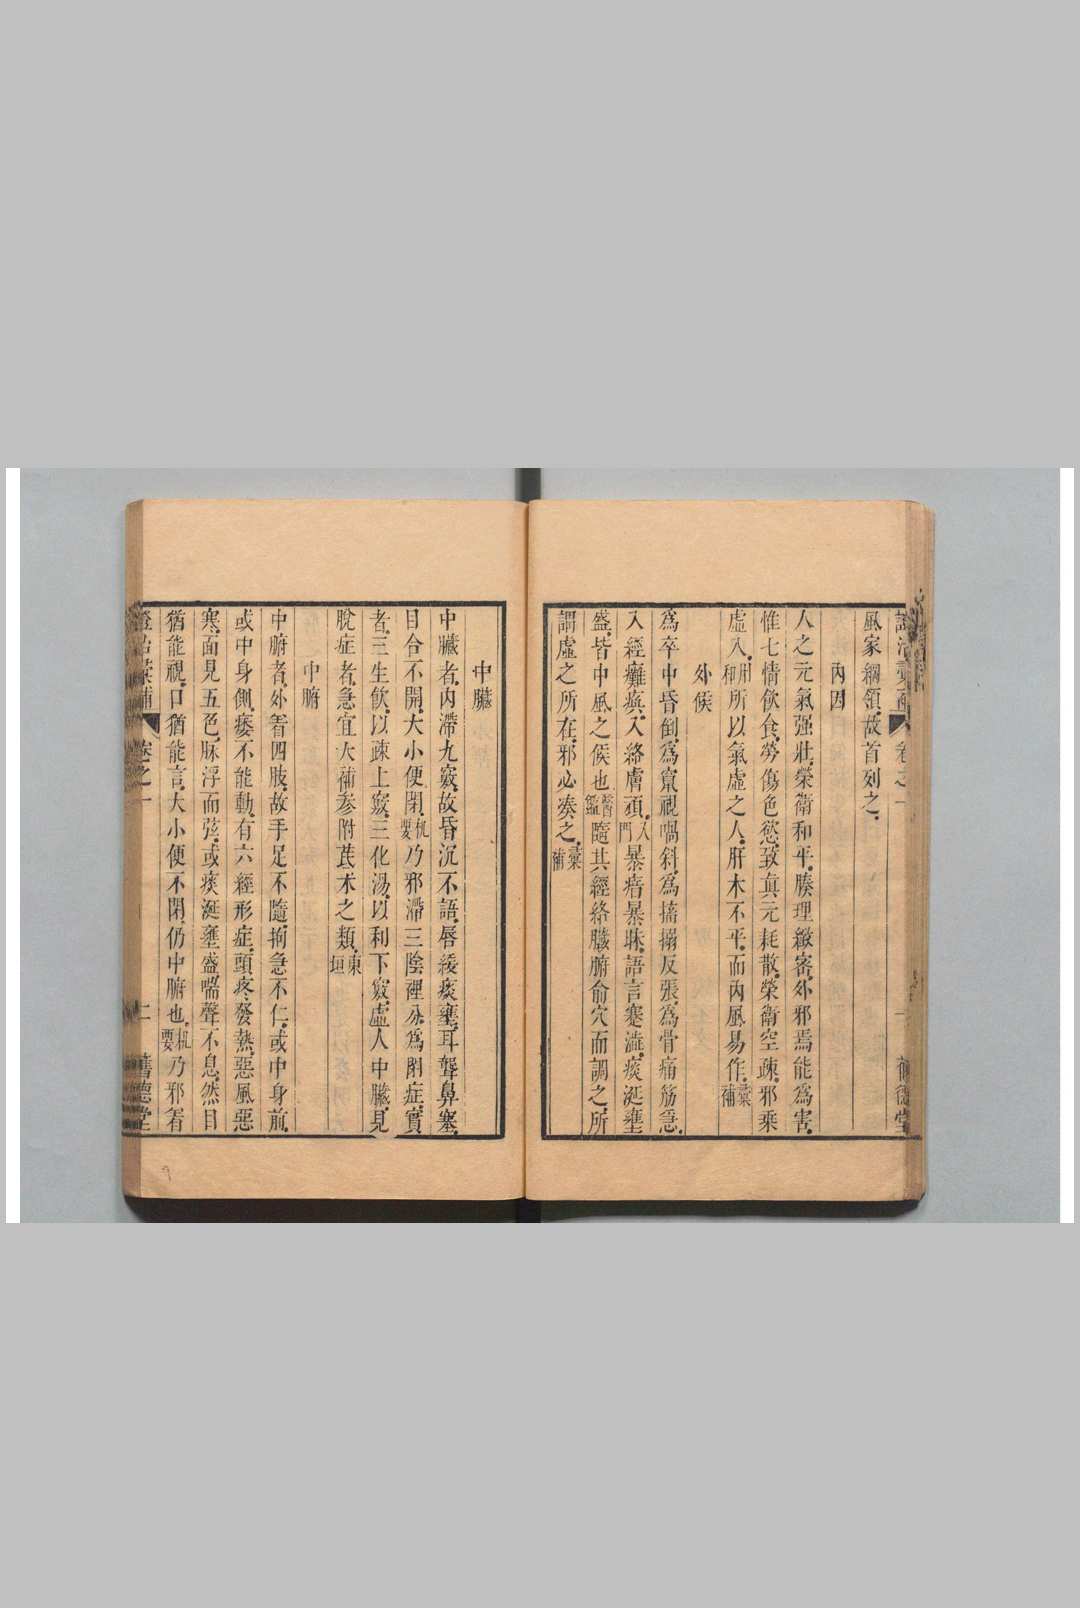 風家綱領故首列之
內因
人之元氣强壯榮衛和平腠理緻密外邪焉能爲害
惟七情飲食勞傷色慾致眞元耗散榮衛空疎邪乘
虛入刪和所以氣虛之人肝木不平而內風易作彙補
外候
爲卒中昏倒爲竄視喎斜爲搐搦反張爲骨痛筋急
入經癱瘓入絡膚頑入門暴瘖暴昧語言蹇澁痰涎壅
盛皆中風之候也醫鑑隨其經絡臟腑俞穴而調之所
謂虛之所在邪必湊之彙補
中臟
中臟者內滯九竅故昏沉不語唇緩痰壅耳聾鼻塞
目合不開大小便閉机要乃邪滯三陰裡分爲閉症實
者三生飲以疎上竅三化湯以利下竅虛人中臟見
脫症者急宜大補參附芪朮之類東垣
中腑
中腑者外着四肢故手足不隨拘急不仁或中身前
或中身側痿不能動有六經形症頭疼發熱惡風惡
寒面見五色脉浮而弦或痰涎壅盛喘聲不息然目
猶能視口猶能言大小便不閉仍中腑也机要乃邪着
證治彙補 卷之一 二 舊德堂